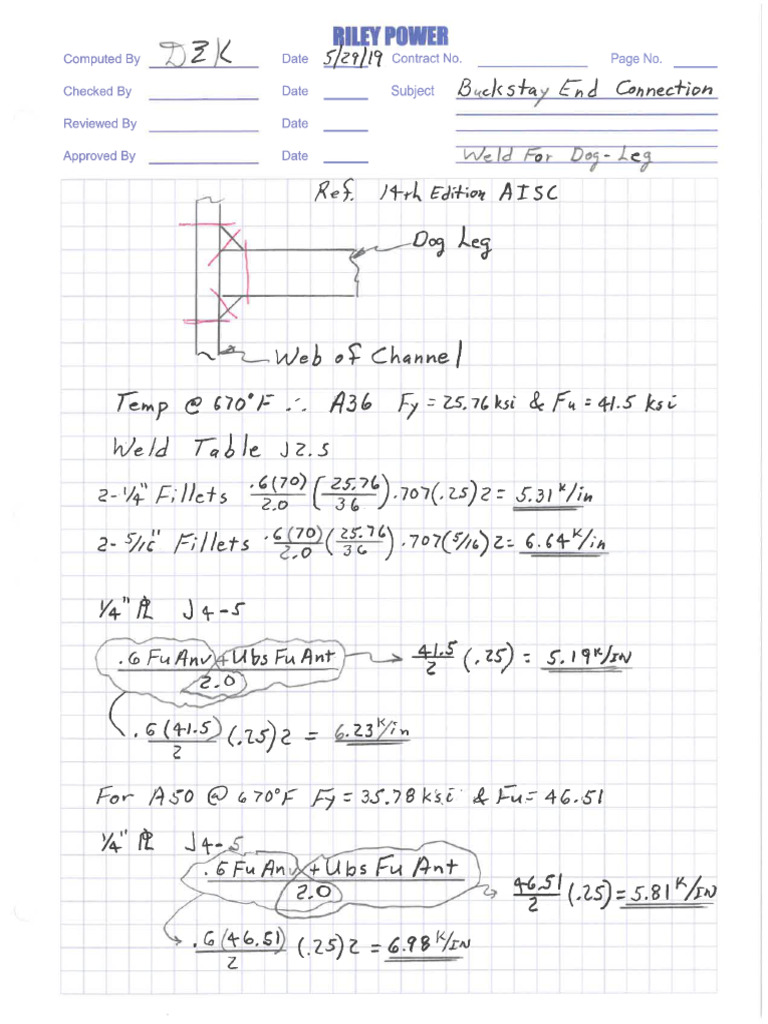 RILEY POWER
Computed By DZK Date 5/29/19 Contract No. Page No.
Checked By Date Subject Buckstay End Connection
Reviewed By Date
Approved By Date Weld For Dog-Leg
Ref. 14th Edition AISC
Dog Leg
Web of Channel
Temp @ 670°F ∴ A36 Fy = 25.76 ksi & Fu = 41.5 ksi
Weld Table J2.5
2-1/4" Fillets .6(70)/2.0 (25.76/36) .707(.25)2 = 5.31 K/in
2-5/16" Fillets .6(70)/2.0 (25.76/36) .707(5/16)2 = 6.64 K/in
1/4" PL J4-5
.6 Fu Anv + Ubs Fu Ant / 2.0 → 41.5/2 (.25) = 5.19 K/IN
.6(41.5)/2 (.25)2 = 6.23 K/in
For A50 @ 670°F Fy = 35.78 ksi & Fu = 46.51
1/4" PL J4-5
.6 Fu Anv + Ubs Fu Ant / 2.0 → 46.51/2 (.25) = 5.81 K/IN
.6(46.51)/2 (.25)2 = 6.98 K/IN